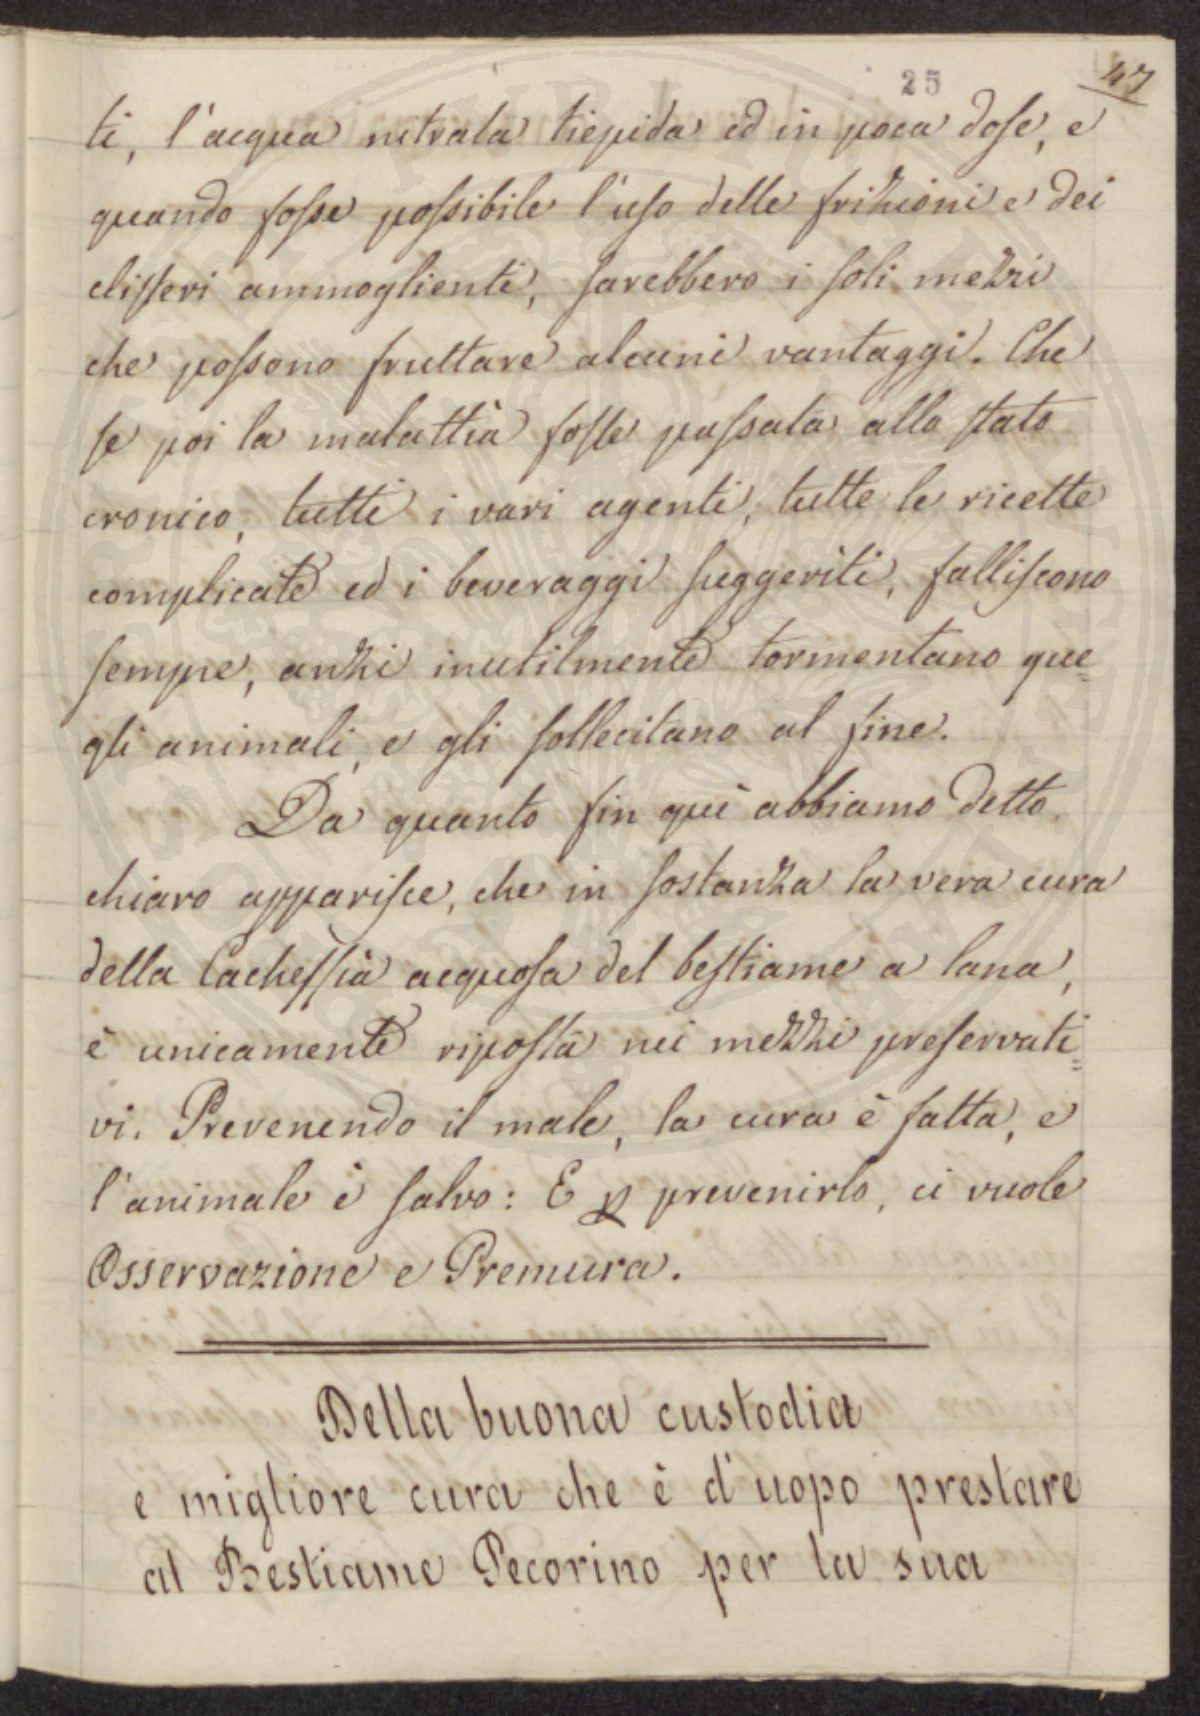 25
47
ti, l'acqua nitrata tiepida ed in poca dose, e
quando fosse possibile l'uso delle frizioni e dei
clisteri ammoglienti, sarebbero i soli mezzi
che possono fruttare alcuni vantaggi. Che
se poi la malattia fosse passata allo stato
cronico, tutti i vari agenti, tutte le ricette
complicate ed i beveraggi suggeriti, falliscono
sempre, anzi inutilmente tormentano que=
gli animali, e gli sollecitano al fine.
Da quanto fin quì abbiamo detto
chiaro apparisce, che in sostanza la vera cura
della Cachessia acquosa del bestiame a lana,
è unicamente riposta nei mezzi preservati=
vi. Prevenendo il male, la cura è fatta, e
l'animale è salvo: E p prevenirlo, ci vuole
Osservazione e Premura.
Della buona custodia
e migliore cura che è d'uopo prestare
al Bestiame Pecorino per la sua